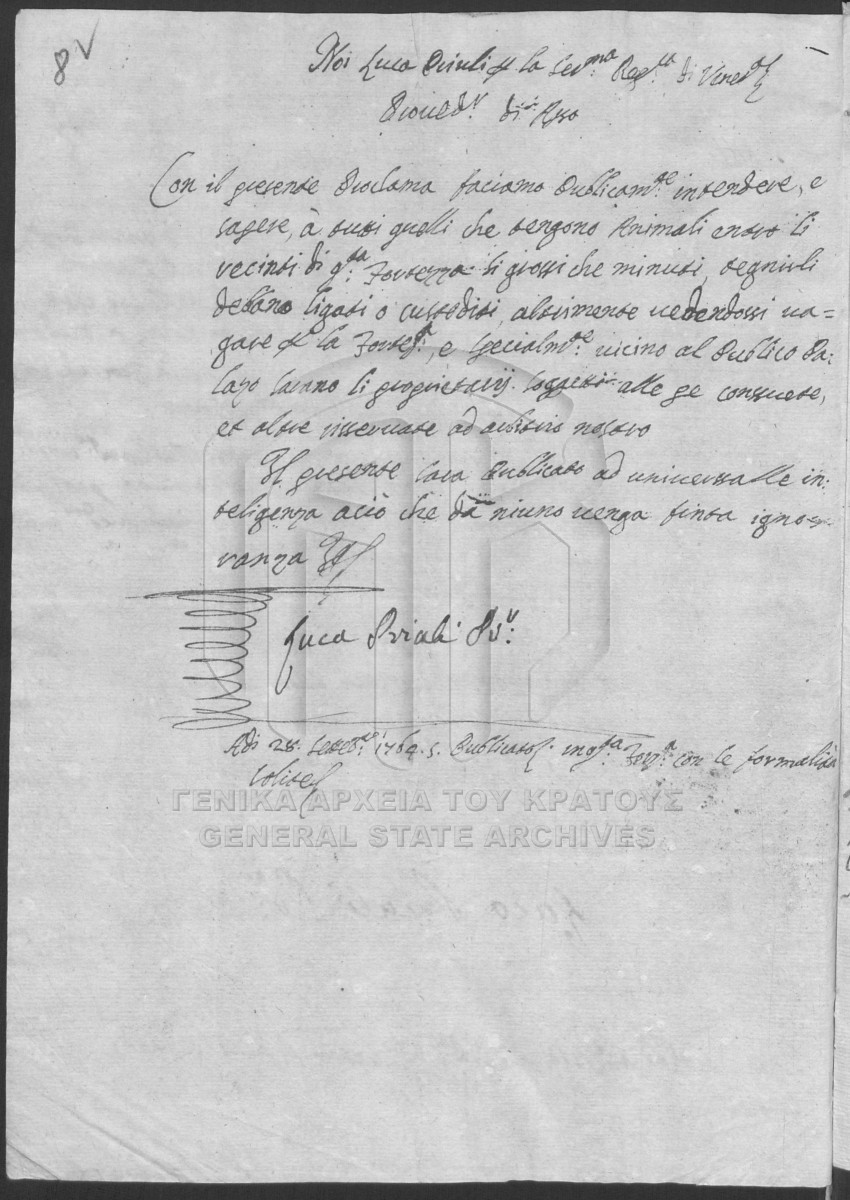 8v
Noi Luca Priuli p la Ser.ma Rep.ca di Venez.a
Proved.r di Asso
Con il presente Proclama faciamo Publicam.te intendere, e
sapere, à tutti quelli che tengono Animali entro li
recinti di q.ta Fortezza si grossi che minuti, tegnirli
debbano ligati o custoditi, altrimente vedendossi va=
gare p la Fortez.a, e specialm.te vicino al Publico Pa:
lazo sarano li proprietarij soggetti alle pe consuete,
et altre risservate ad arbitrio nostro
Il presente sara Publicato ad universalle in:
teligenza aciò che da niuno venga finta igno=
ranza
Luca Priuli Pr.r
Adi 28 Setteb.e 1764. s. Publicato in q.ta Forz.a con le formalità
solite
ΓΕΝΙΚΑ ΑΡΧΕΙΑ ΤΟΥ ΚΡΑΤΟΥΣ
GENERAL STATE ARCHIVES